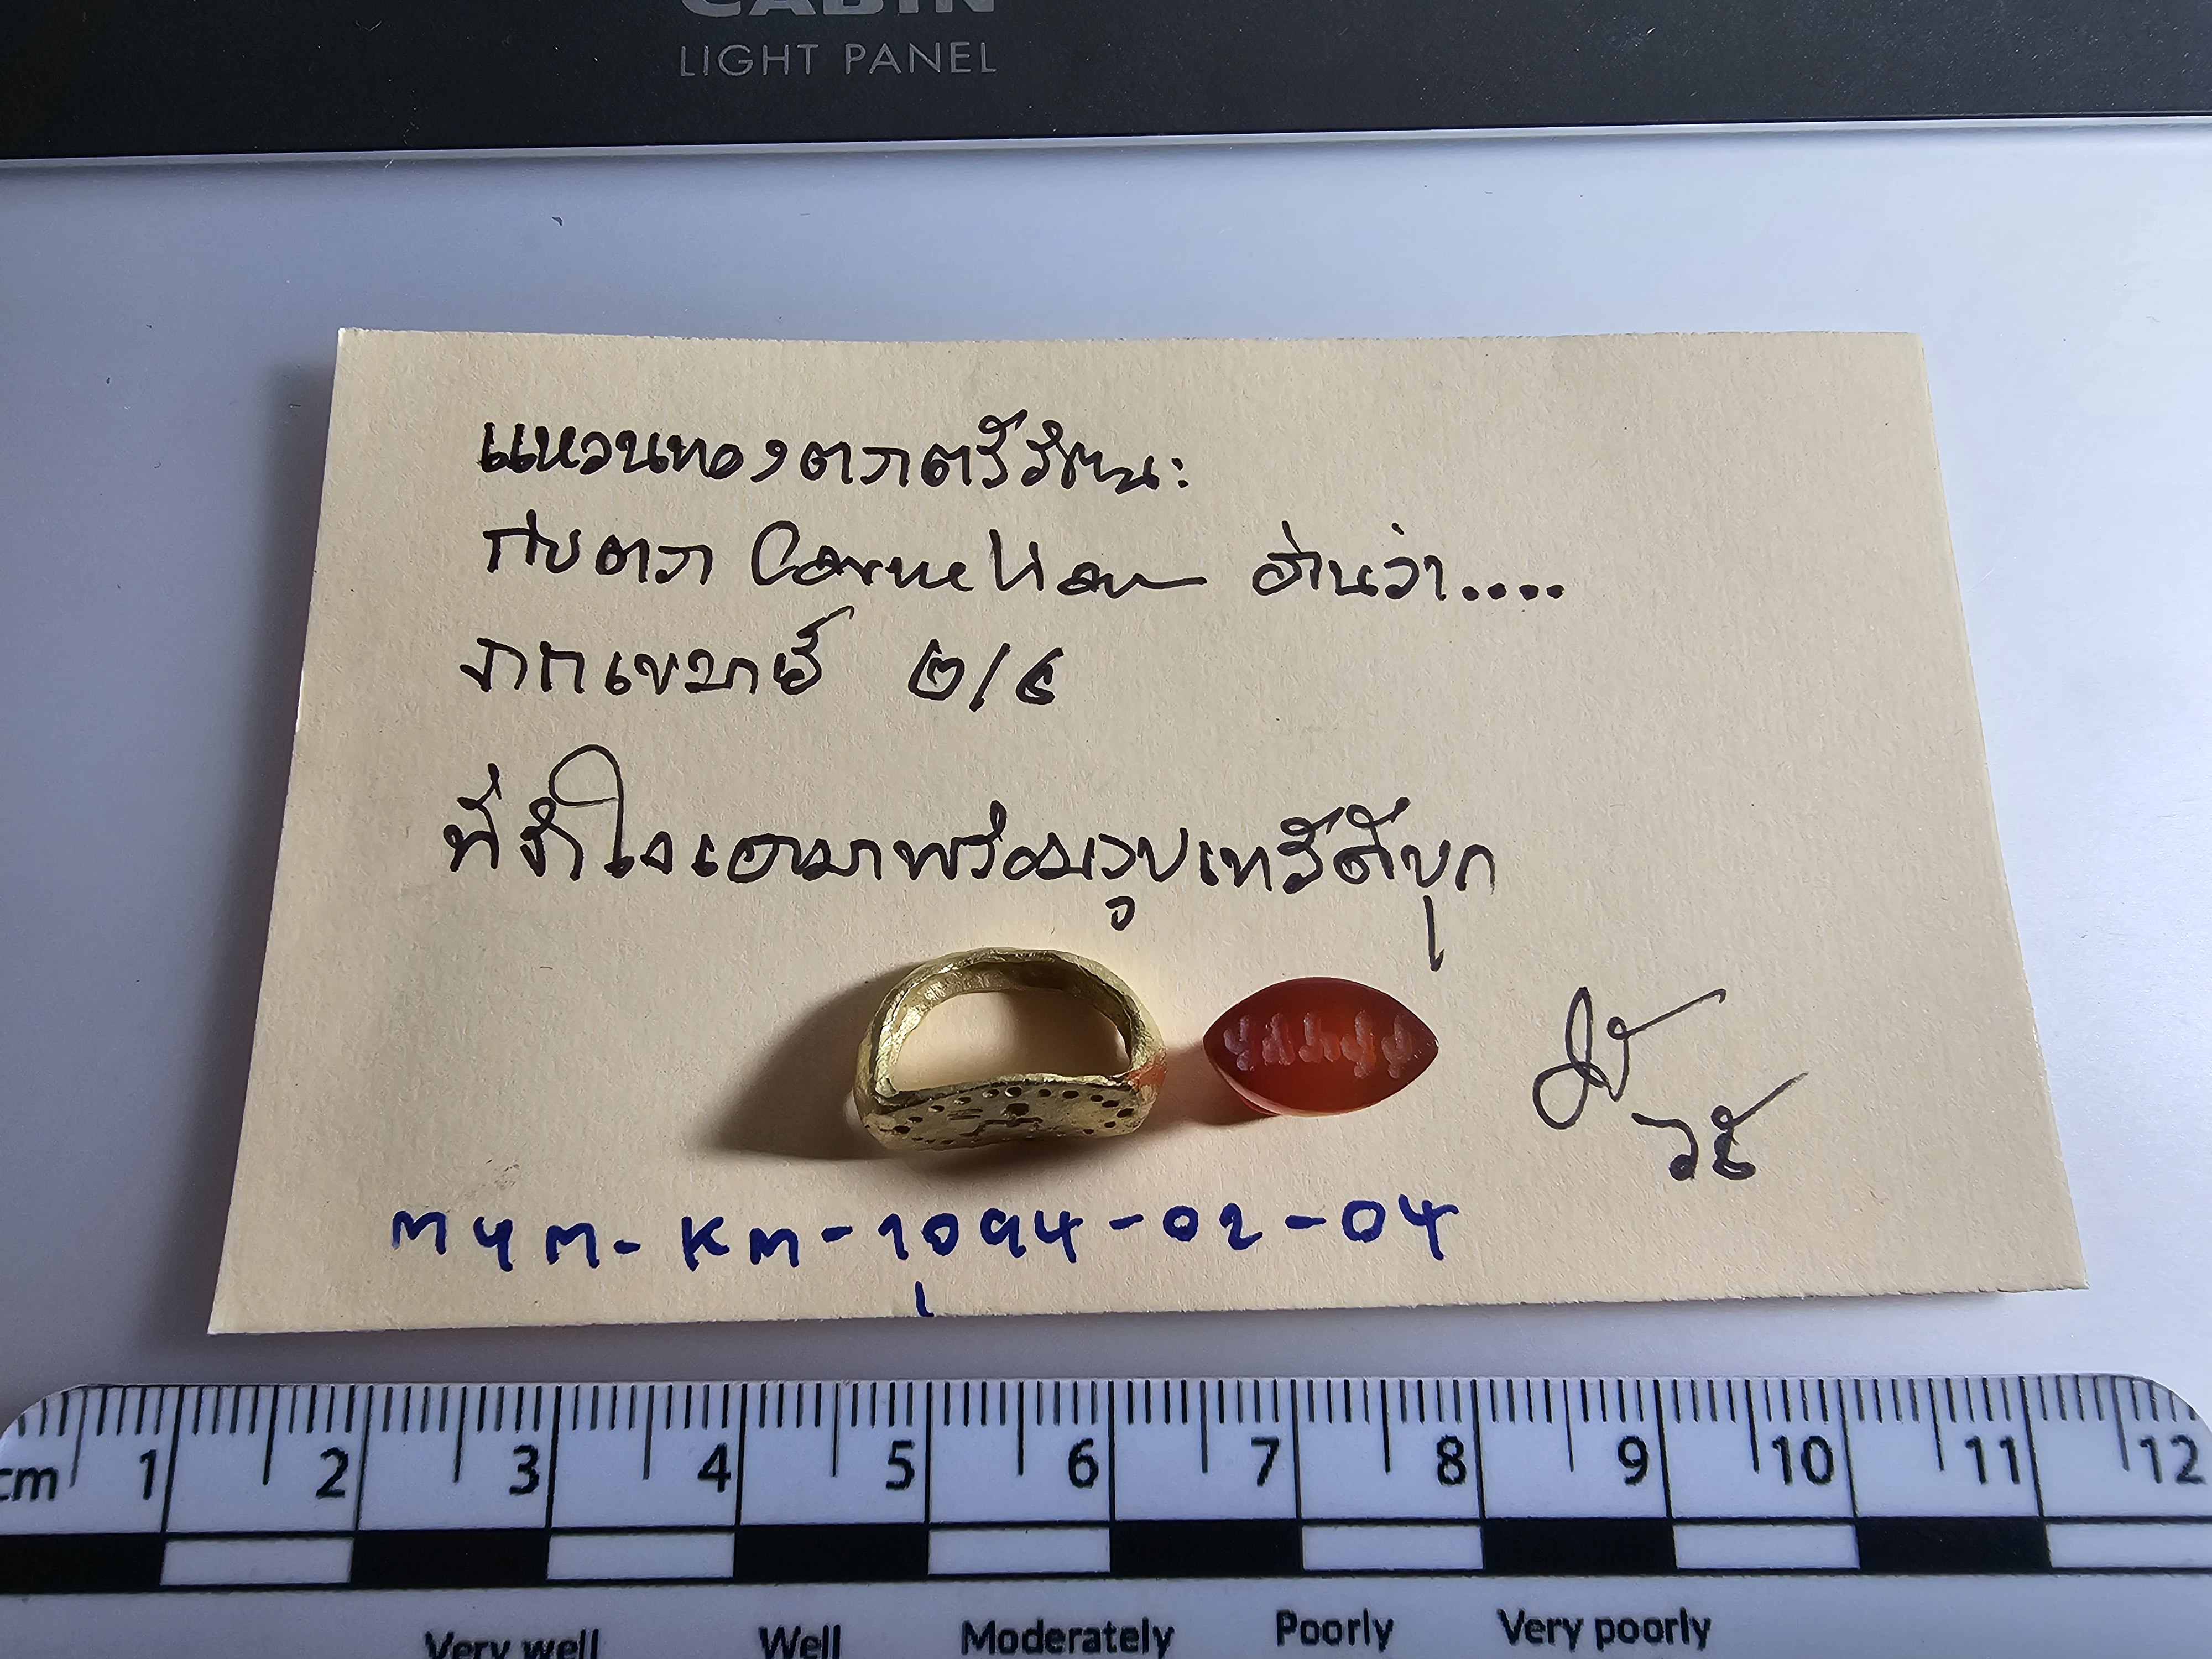 CABIN
LIGHT PANEL
แหวนทองตราตรีรัตนะ
กับตรา Carnelian อ่านว่า....
จากเขมายี้ ๒/๕
ที่จำใจเอามาพร้อมรูปเทริดีบุก
MYM-KM-1094-02-04
cm 1 2 3 4 5 6 7 8 9 10 11 12
Very well Well Moderately Poorly Very poorly